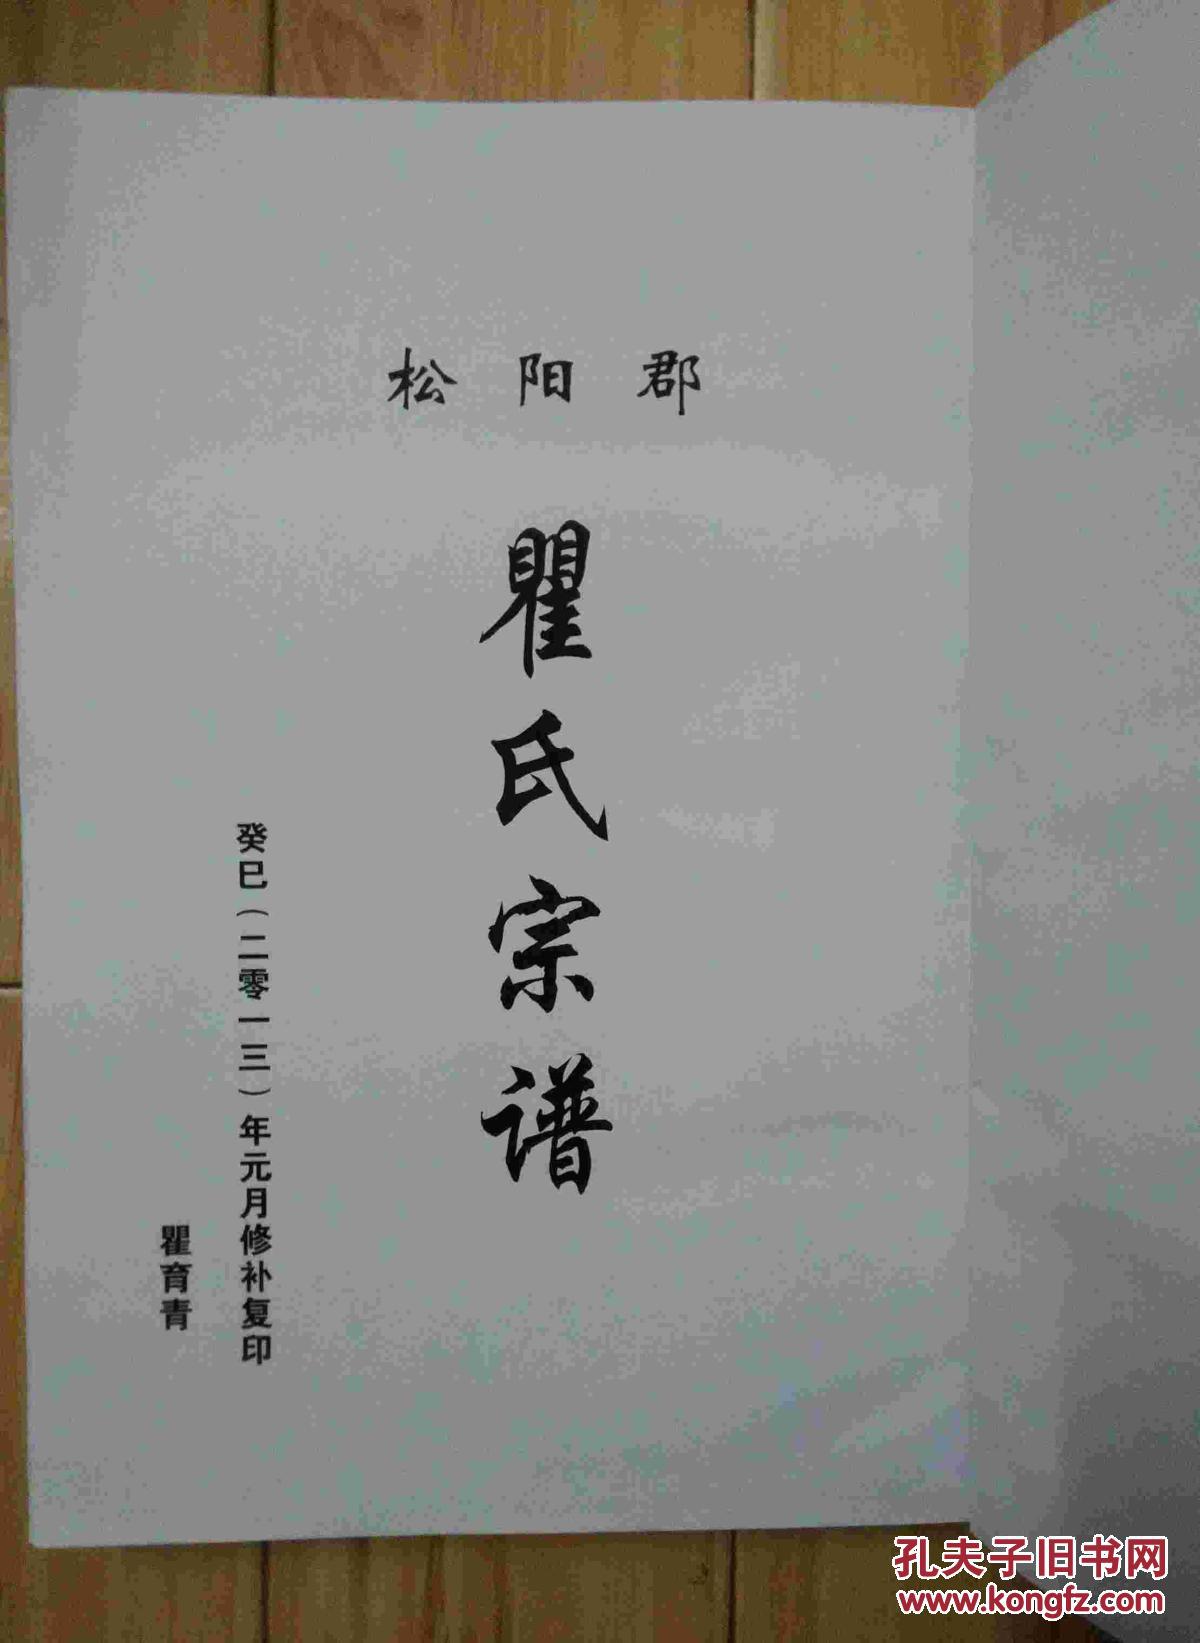 松阳郡
瞿氏宗谱
癸巳（二零一三）年元月修补复印
瞿育青
孔夫子旧书网
www.kongfz.com